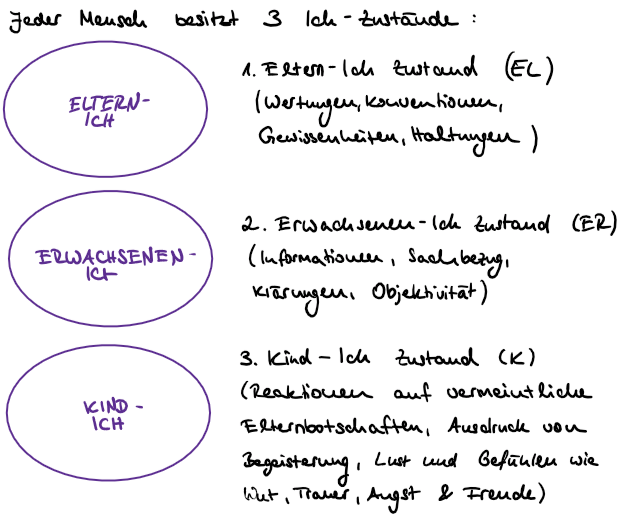 Jeder Mensch besitzt 3 Ich-Zustände :
ELTERN-
ICH
1. Eltern-Ich Zustand (EL)
(Wertungen, Konventionen,
Gewissenheiten, Haltungen )
ERWACHSENEN-
ICH
2. Erwachsenen-Ich Zustand (ER)
(Informationen, Sachbezug,
Klärungen, Objektivität)
KIND-
ICH
3. Kind-Ich Zustand (K)
(Reaktionen auf vermeintliche
Elternbotschaften, Ausdruck von
Begeisterung, Lust und Gefühlen wie
Wut, Trauer, Angst & Freude)